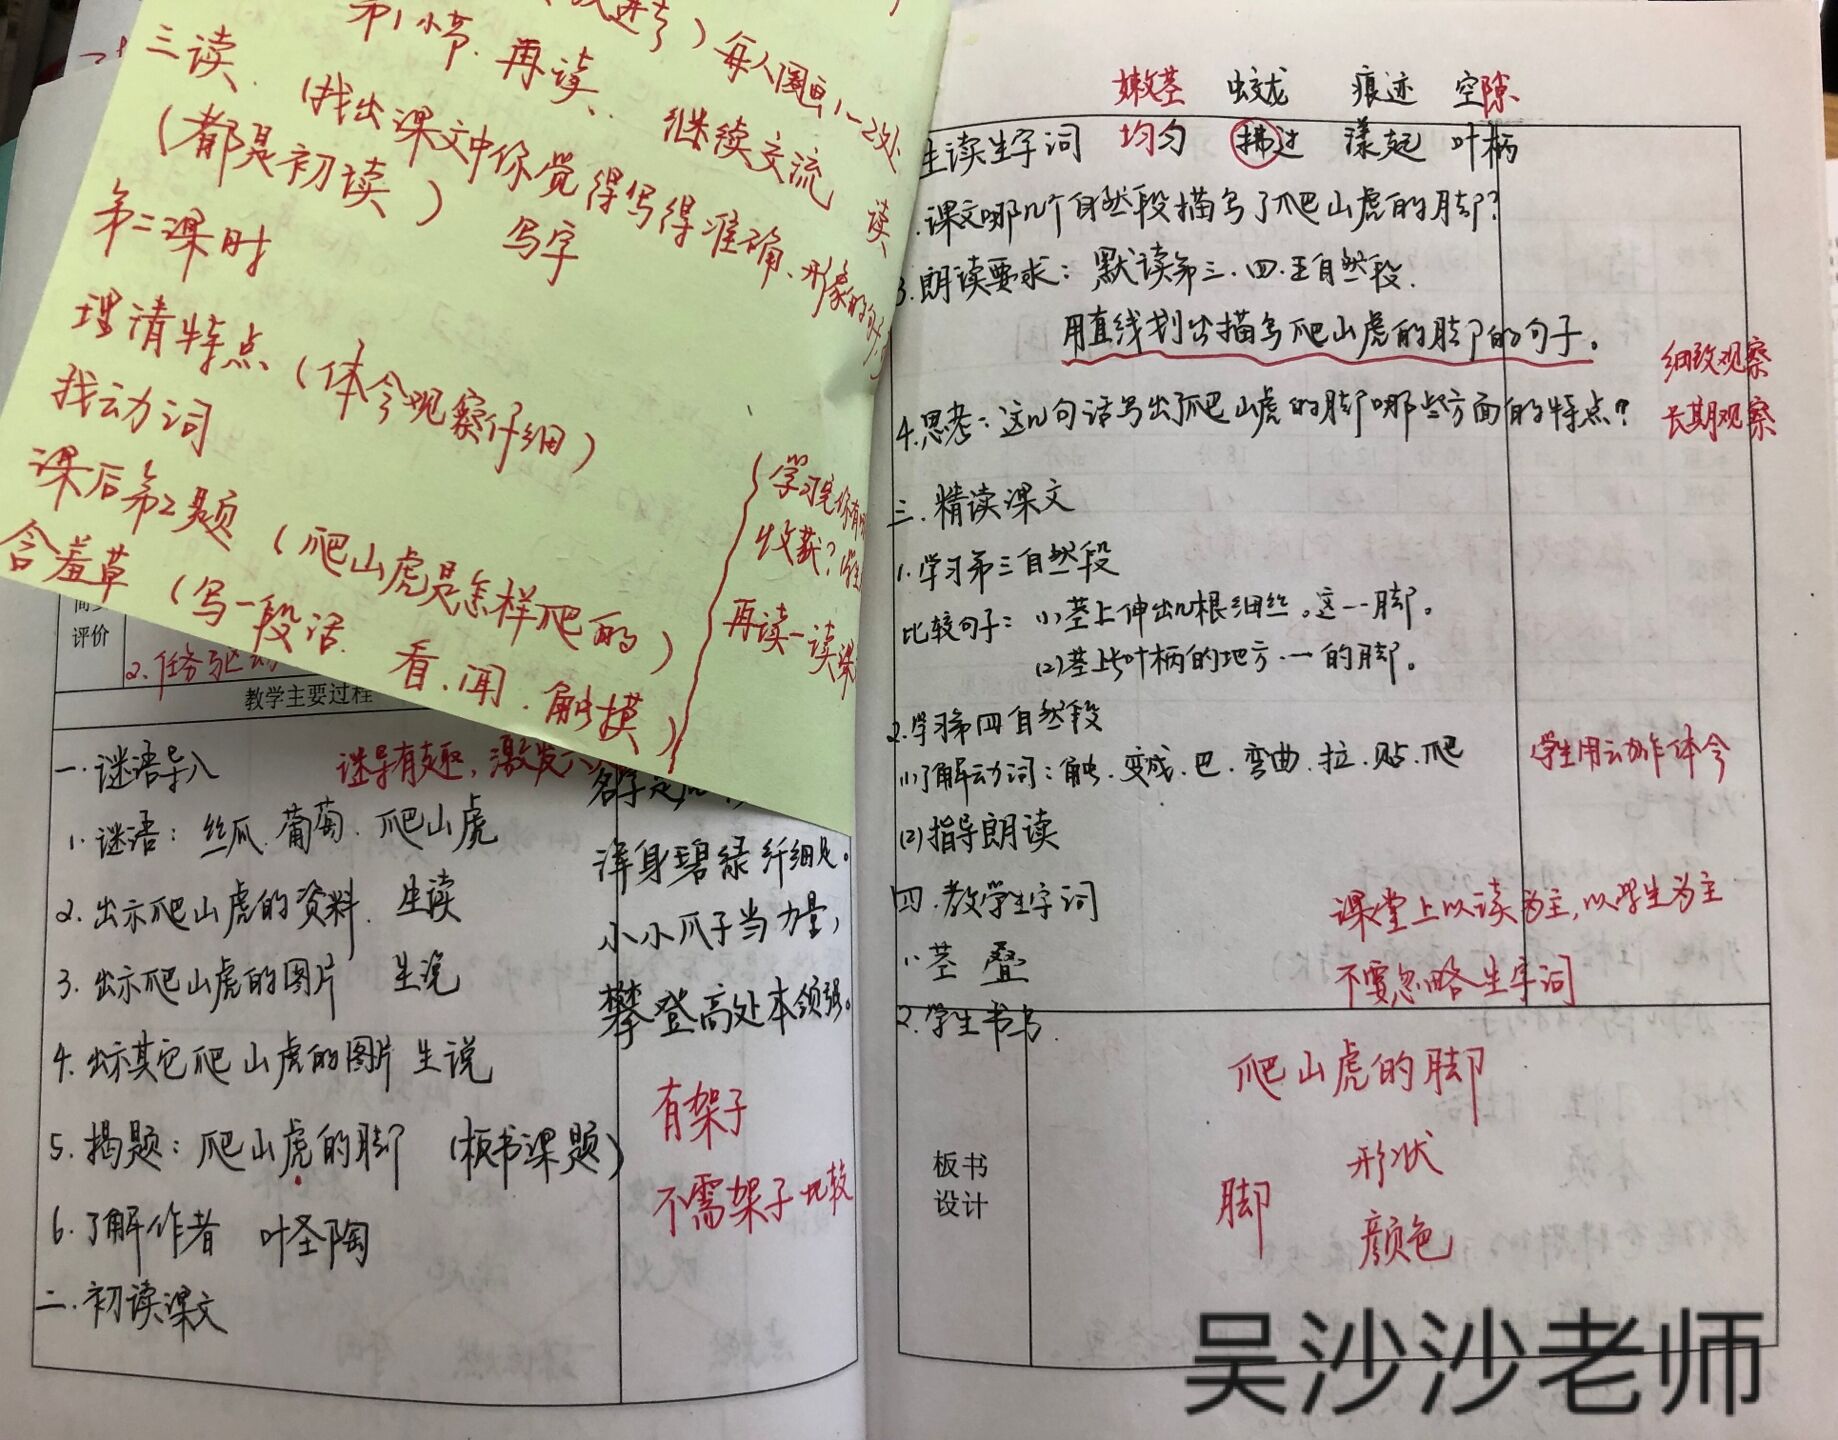 第1小节.再读、
每人圈画1-2处
三读、(找出课文中你觉得写得准确、形象的句子.
继续交流
读
(都是初读)
写字
第二课时
理清特点(体会观察仔细)
找动词
课后第2题(爬山虎是怎样爬的)
含羞草(写一段话.看.闻.触摸)
收获?
再读一读课
评价
2.任务驱动
教学主要过程
一.谜语导入
谜导有趣,激发
1.谜语:丝瓜.葡萄.爬山虎
2.出示爬山虎的资料.生读
3.出示爬山虎的图片 生说
4.出示其它爬山虎的图片 生说
5.揭题:爬山虎的脚 (板书课题)
6.了解作者 叶圣陶
二.初读课文
浑身碧绿纤细足。
小小爪子当力量,
攀登高处本领强。
有架子
不需架子 比较
嫩茎 蛟龙 痕迹 空隙
生读生字词 均匀 拂过 漾起 叶柄
.课文哪几个自然段描写了爬山虎的脚?
3.朗读要求:默读第三.四.五自然段.
用直线划出描写爬山虎的脚的句子。
细致观察
4.思考:这几句话写出了爬山虎的脚哪些方面的特点?
长期观察
三.精读课文
1.学习第三自然段
比较句子:(1)茎上伸出几根细丝。这一脚。
(2)茎上长叶柄的地方.一的脚。
2.学习第四自然段
(1)了解动词:触.变成.巴.弯曲.拉.贴.爬
学生用动作体会
(2)指导朗读
四.教学生字词
课堂上以读为主,以学生为主
1.茎 叠
不要忽略生字词
2.学生书写.
爬山虎的脚
板书
设计
脚
形状
颜色
吴沙沙老师